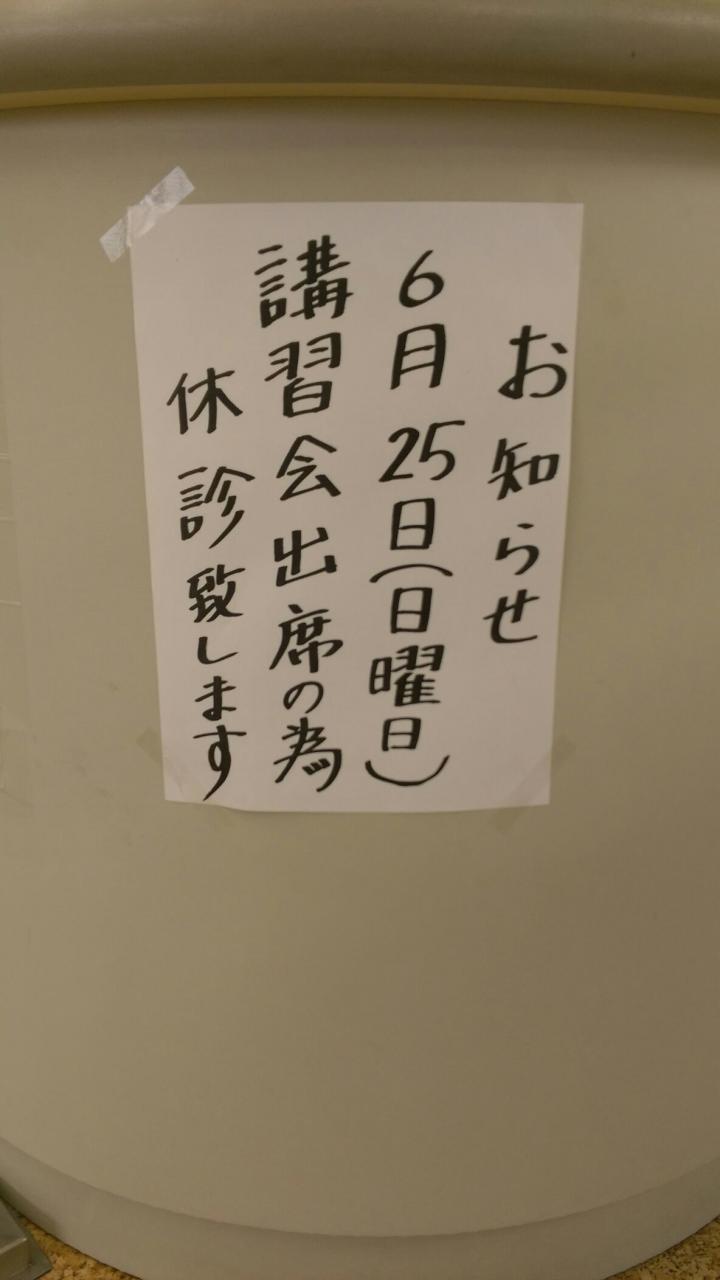 お知らせ
6月25日(日曜日)
講習会出席の為
休診致します